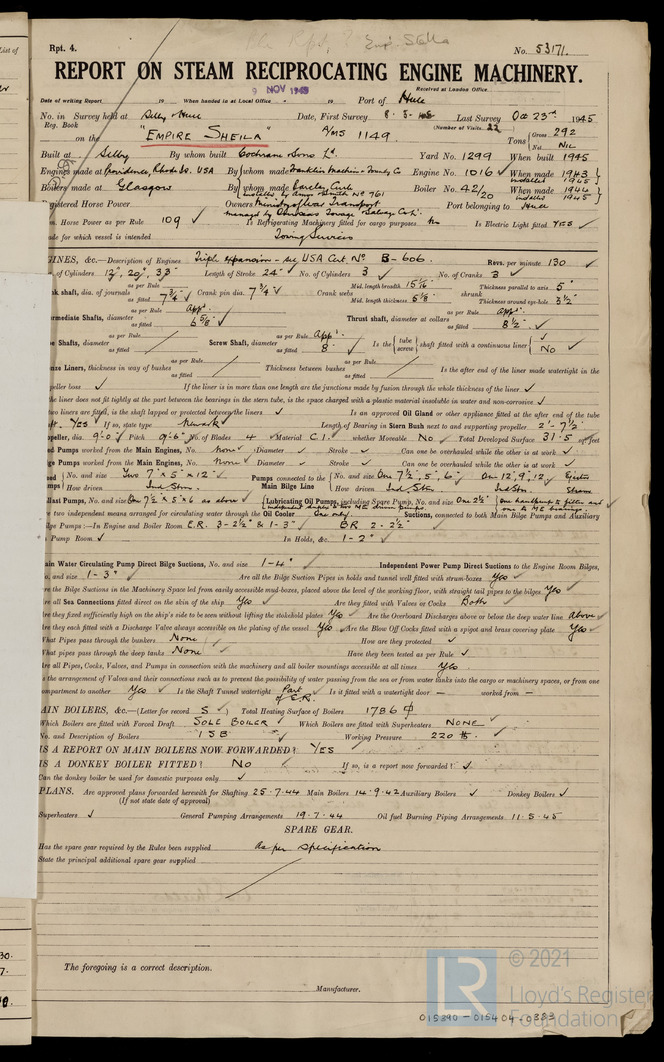 Rpt. 4.
No. 53171.
REPORT ON STEAM RECIPROCATING ENGINE MACHINERY.
Received at London Office
9 NOV 1945
Date of writing Report 19 When handed in at Local Office 19 Port of Hull
No. in Survey held at Selby & Hull Date, First Survey 8.5.45 Last Survey Oct 23rd 1945
Reg. Book (Number of Visits 22)
on the "EMPIRE SHEILA" A/MS 1149. Tons Gross 292 Net Nil
Built at Selby By whom built Cochrane & Sons Ld. Yard No. 1299 When built 1945
Engines made at Providence, Rhode Is. USA By whom made Franklin Machine & Foundry Co Engine No. 1016 When made 1943
installed 1945
Boilers made at Glasgow By whom made Barclay Curle Boiler No. 42/20 When made 1944
installed by Amos & Smith No 761 installed 1945
Registered Horse Power Owners Ministry of War Transport Port belonging to Hull
managed by Overseas Towage & Salvage Co Ld.
Horse Power as per Rule 109 Is Refrigerating Machinery fitted for cargo purposes No Is Electric Light fitted YES
for which vessel is intended Towing Services
GINES, &c.—Description of Engines Triple expansion - see USA Cert. No B-606. Revs. per minute 130
of Cylinders 12", 20", 33" Length of Stroke 24" No. of Cylinders 3 No. of Cranks 3
shaft, dia. of journals as per Rule as fitted 7 3/4" Crank pin dia. 7 3/4" Crank webs Mid. length breadth 15 1/16" Mid. length thickness 5 1/8" shrunk Thickness parallel to axis 5" Thickness around eye-hole 3 1/2"
Intermediate Shafts, diameter as per Rule App. as fitted 6 5/8" Thrust shaft, diameter at collars as per Rule App. as fitted 8 1/2"
Shafts, diameter as per Rule as fitted Screw Shaft, diameter as per Rule App. as fitted 8" Is the tube screw shaft fitted with a continuous liner No
Liners, thickness in way of bushes as per Rule as fitted Thickness between bushes as per Rule as fitted Is the after end of the liner made watertight in the
propeller boss If the liner is in more than one length are the junctions made by fusion through the whole thickness of the liner
the liner does not fit tightly at the part between the bearings in the stern tube, is the space charged with a plastic material insoluble in water and non-corrosive
two liners are fitted, is the shaft lapped or protected between the liners Is an approved Oil Gland or other appliance fitted at the after end of the tube
YES If so, state type Newark Length of Bearing in Stern Bush next to and supporting propeller 2'-7 1/2"
Propeller, dia. 9'-0" Pitch 9'-6" No. of Blades 4 Material C.I. whether Moveable No Total Developed Surface 31.5 sq. feet
Pumps worked from the Main Engines, No. None Diameter Stroke Can one be overhauled while the other is at work
Bilge Pumps worked from the Main Engines, No. None Diameter Stroke Can one be overhauled while the other is at work
No. and size Two 7" x 5" x 12" Pumps connected to the Main Bilge Line No. and size One 7 1/2", 5", 6" One 12", 9", 12" Ejector
How driven Ind. Stm. How driven Ind. Stm. Ind. Stm. Steam
Ballast Pumps, No. and size One 7 1/2 x 5 x 6 as above Lubricating Oil Pumps, including Spare Pump, No. and size One 2 1/2"
two independent means arranged for circulating water through the Oil Cooler Suctions, connected to both Main Bilge Pumps and Auxiliary
Bilge Pumps:—In Engine and Boiler Room E.R. 3-2 1/2" & 1-3" BR. 2-2 1/2"
Pump Room In Holds, &c. 1-2"
Main Water Circulating Pump Direct Bilge Suctions, No. and size 1-4" Independent Power Pump Direct Suctions to the Engine Room Bilges,
and size 1-3" Are all the Bilge Suction Pipes in holds and tunnel well fitted with strum-boxes Yes
the Bilge Suctions in the Machinery Space led from easily accessible mud-boxes, placed above the level of the working floor, with straight tail pipes to the bilges Yes
all Sea Connections fitted direct on the skin of the ship Yes Are they fitted with Valves or Cocks Both
they fixed sufficiently high on the ship's side to be seen without lifting the stokehold plates Yes Are the Overboard Discharges above or below the deep water line above
they each fitted with a Discharge Valve always accessible on the plating of the vessel Yes Are the Blow Off Cocks fitted with a spigot and brass covering plate Yes
What Pipes pass through the bunkers None How are they protected
What pipes pass through the deep tanks None Have they been tested as per Rule
Are all Pipes, Cocks, Valves, and Pumps in connection with the machinery and all boiler mountings accessible at all times Yes
the arrangement of Valves and their connections such as to prevent the possibility of water passing from the sea or from water tanks into the cargo or machinery spaces, or from one
compartment to another Yes Is the Shaft Tunnel watertight Part of E.R. Is it fitted with a watertight door — worked from —
MAIN BOILERS, &c.—(Letter for record S) Total Heating Surface of Boilers 1786
Which Boilers are fitted with Forced Draft SOLE BOILER Which Boilers are fitted with Superheaters NONE
No. and Description of Boilers 1 SB Working Pressure 220 lb.
IS A REPORT ON MAIN BOILERS NOW FORWARDED? YES
IS A DONKEY BOILER FITTED? NO If so, is a report now forwarded?
Can the donkey boiler be used for domestic purposes only
PLANS. Are approved plans forwarded herewith for Shafting 25.7.44 Main Boilers 14.9.42 Auxiliary Boilers Donkey Boilers
(If not state date of approval)
Superheaters General Pumping Arrangements 19.7.44 Oil fuel Burning Piping Arrangements 11.5.45
SPARE GEAR.
Has the spare gear required by the Rules been supplied as per specification
State the principal additional spare gear supplied
The foregoing is a correct description.
Manufacturer.
© 2021
Lloyd's Register
Foundation
015390-015404-0383